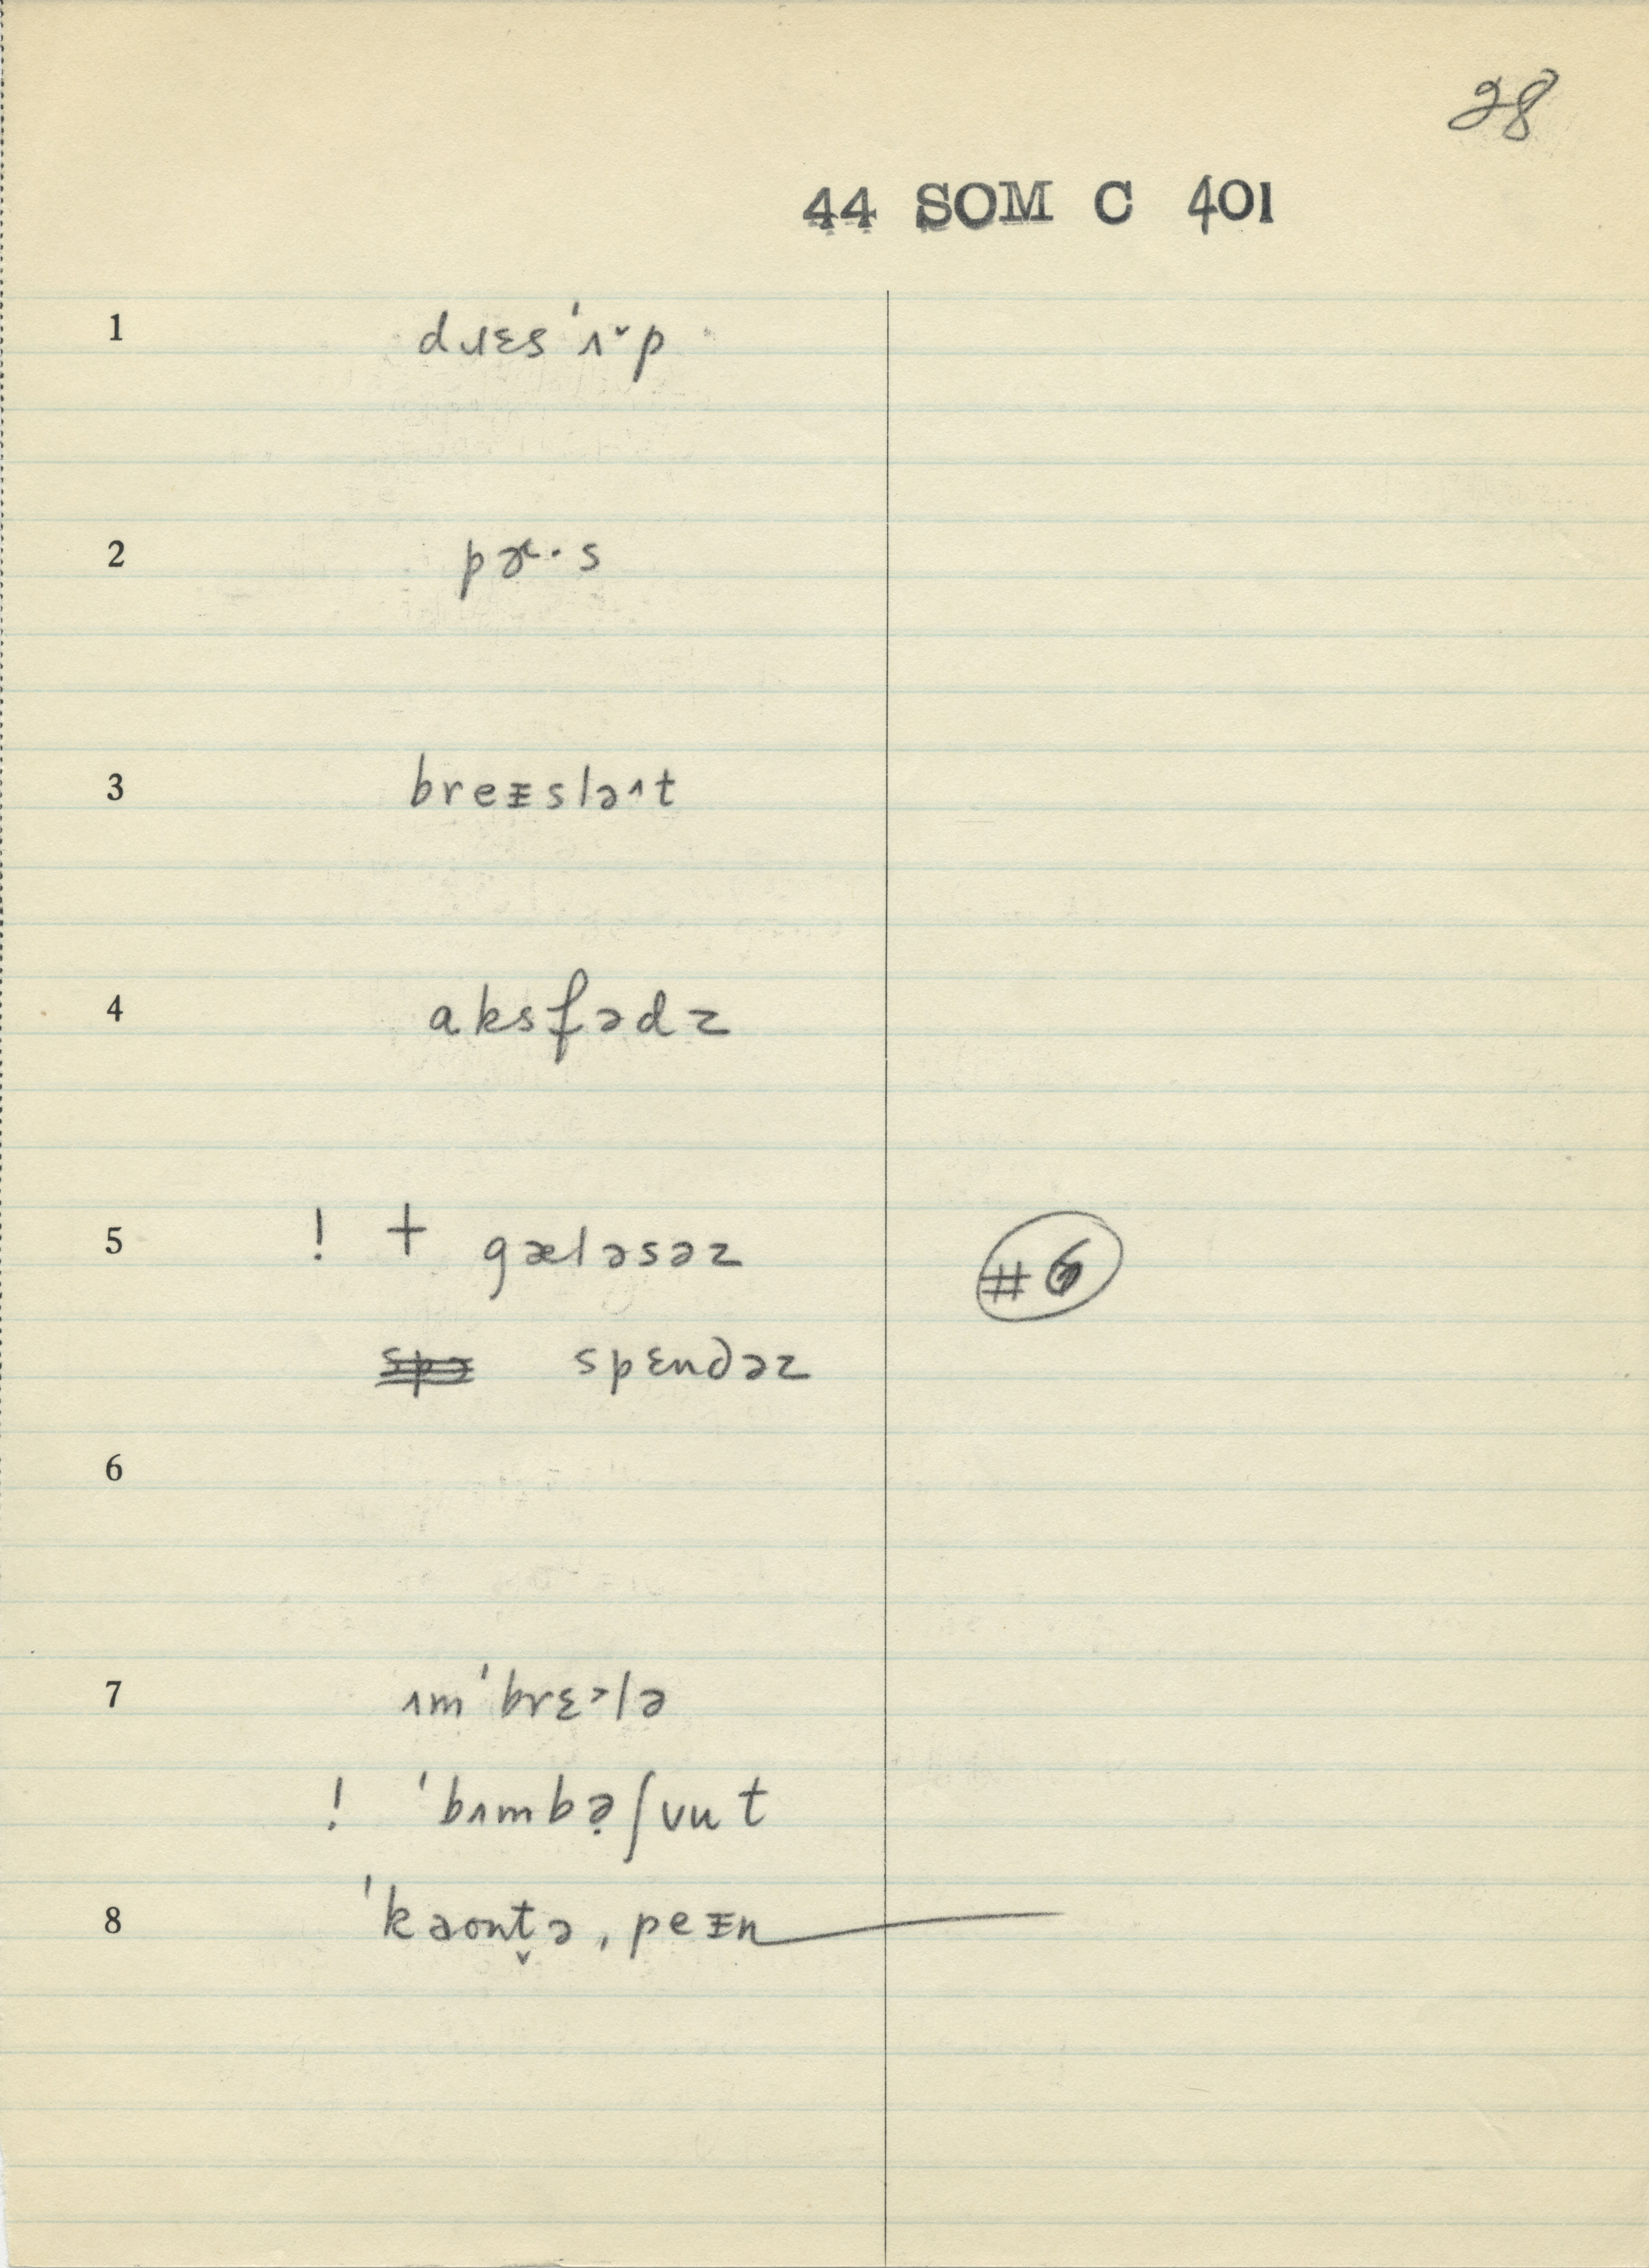 28
44 SOM C 401
1 dɹɛs ˈʌ˅p
2 pɚ·s
3 breᵻslə˄t
4 aksfədz
5 ! + gæləsəz #6
spə spɛndəz
6
7 ʌmˈbrɛ˃lə
! ˈbʌmbə̣ʃuut
8 ˈkəʊnt̬ə ˌpeᵻn